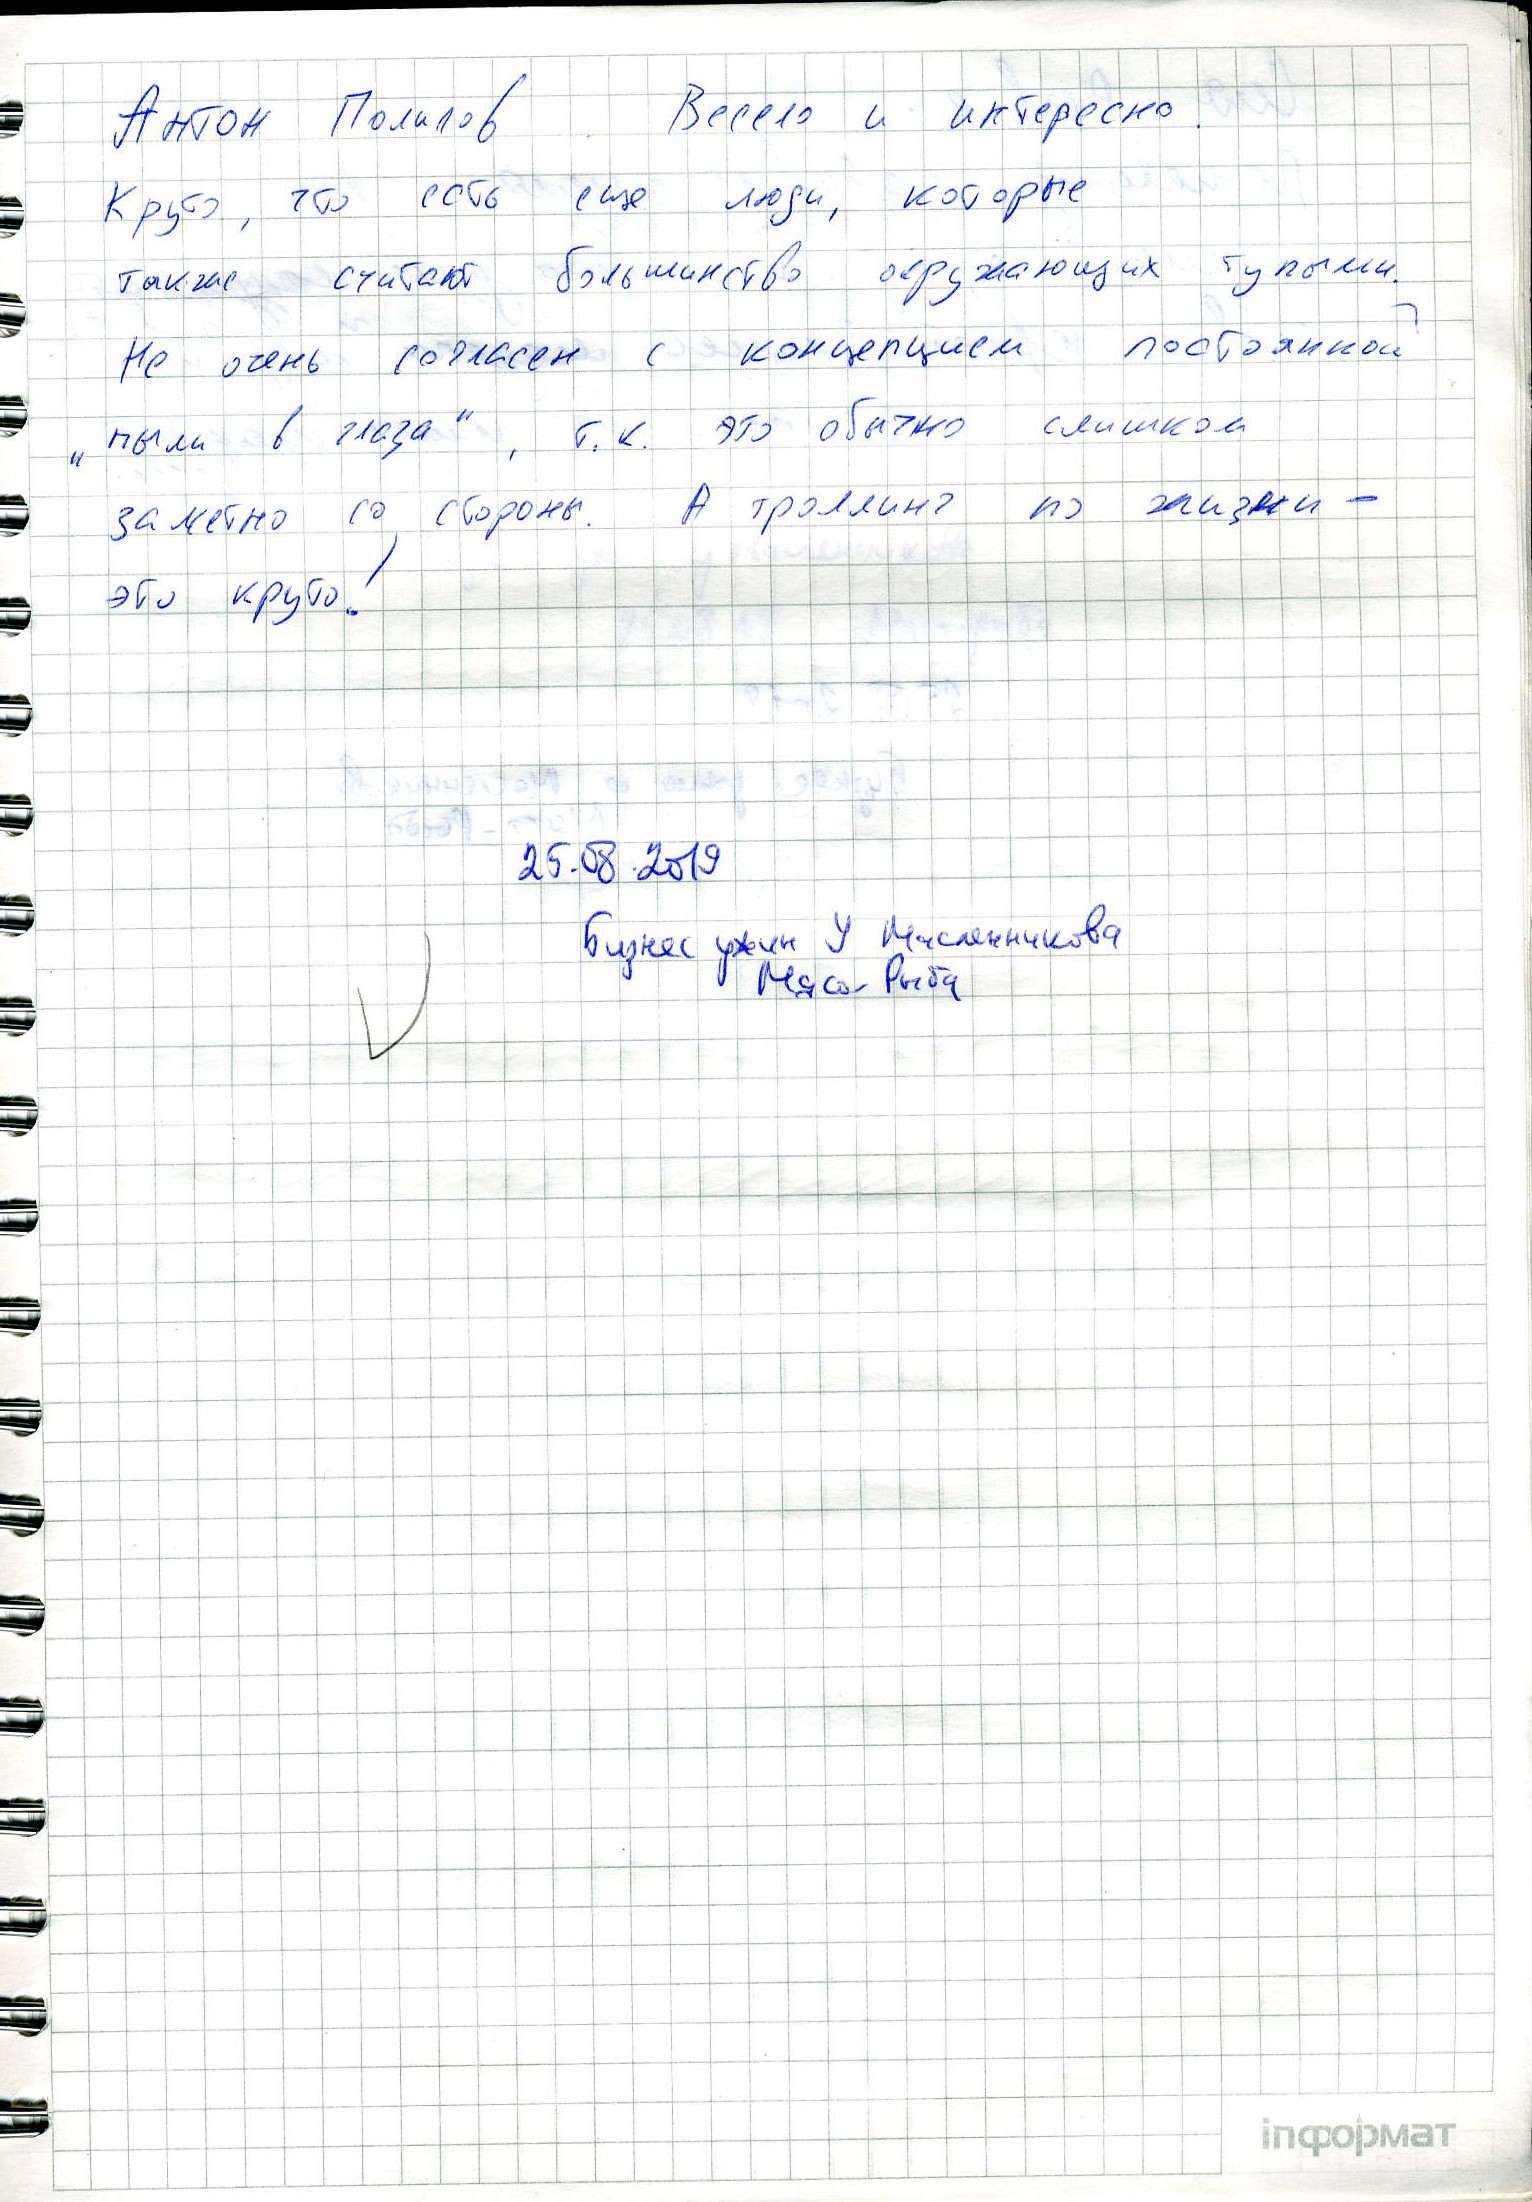 Антон Полилов. Весело и интересно.
Круто, что есть еще люди, которые
также считают большинство окружающих тупыми.
Не очень согласен с концепцием постоянной
„пыли в глаза“, т.к. это обычно слишком
заметно со стороны. А троллинг по жизни –
это круто!
25.08.2019
Бизнес ужин У Масленникова
Мясо-Рыба
inформат